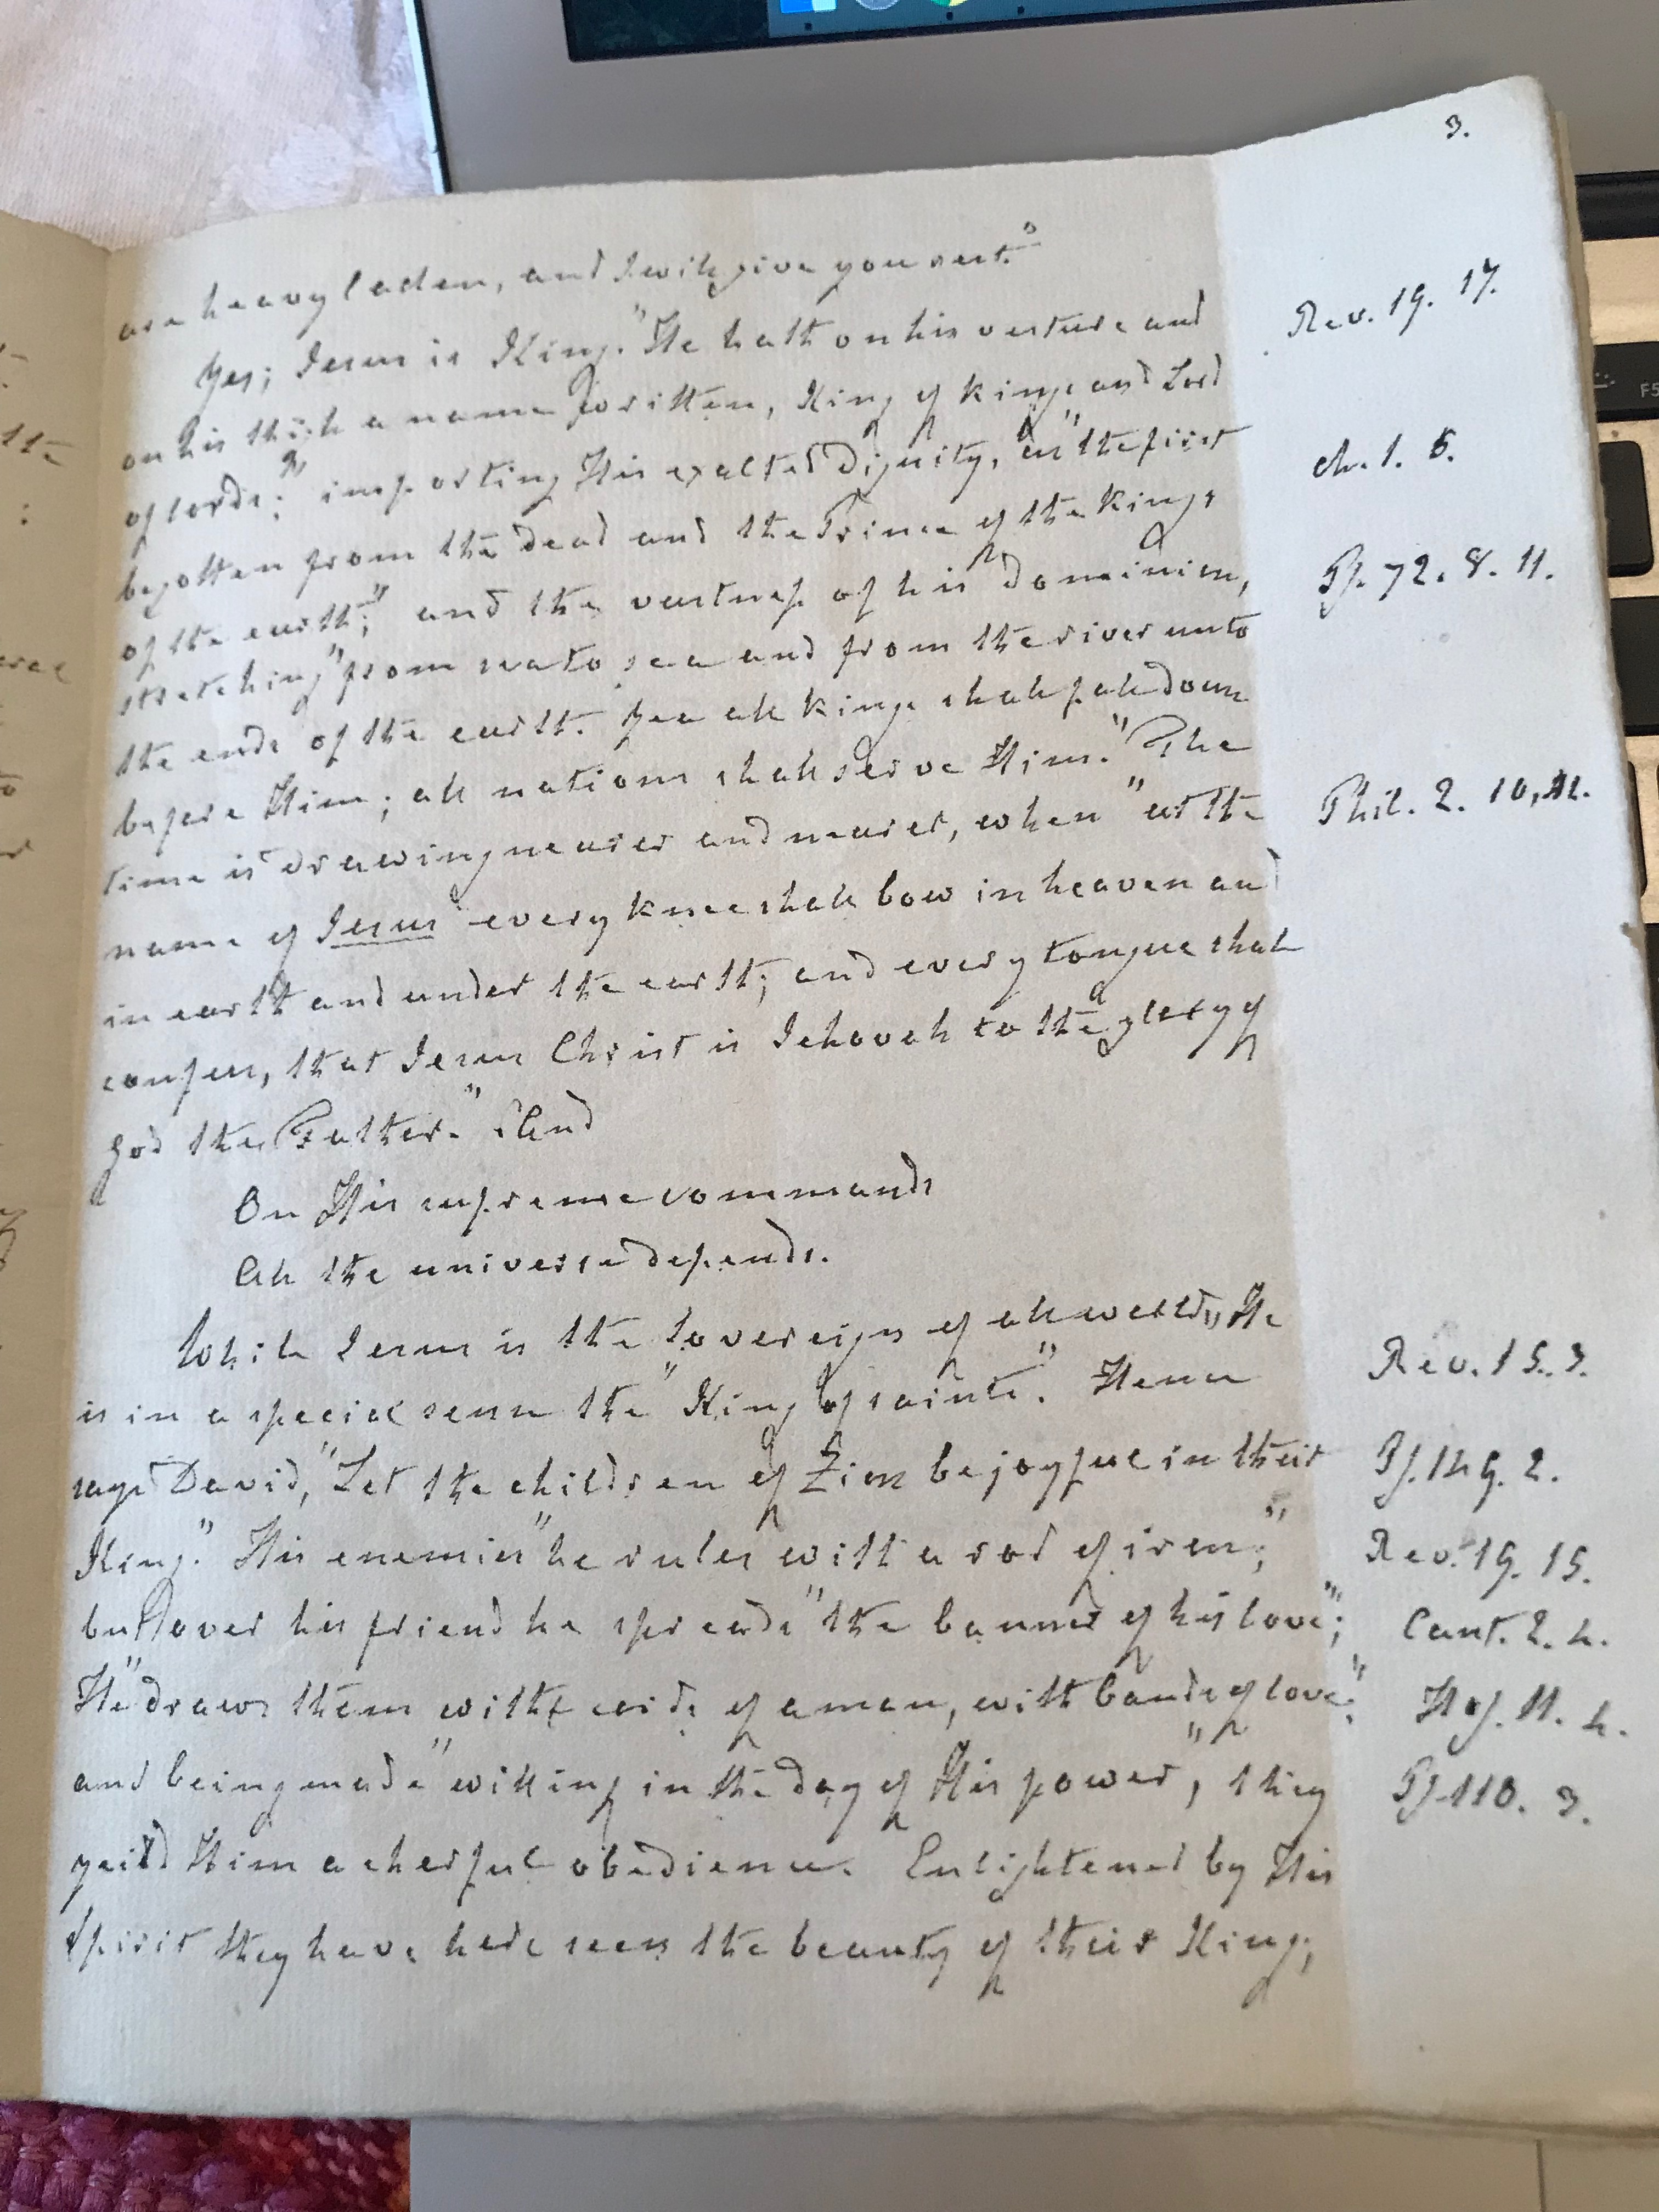 3.
are heavy laden, and I will give you rest."
Yes; Jesus is King. "He hath on his vesture and Rev. 19. 17.
on his thigh a name written, King of kings and Lord
of lords;" importing His exalted dignity, as "the first ch. 1. 5.
begotten from the dead and the Prince of the Kings
of the earth;" and the vastness of his dominion, Ps. 72. 8. 11.
stretching "from sea to sea and from the river unto
the ends of the earth. Yea all kings shall fall down
before Him; all nations shall serve Him." The
time is drawing nearer and nearer, when "at the Phil. 2. 10, 11.
name of Jesus every knee shall bow in heaven and
in earth and under the earth; and every tongue shall
confess, that Jesus Christ is Jehovah to the glory of
God the Father." And
On His supreme commands
All the universe depends.
While Jesus is the Sovereign of all worlds, He
is in a special sense the "King of saints." Hence Rev. 15. 3.
says David, "Let the children of Zion be joyful in their Ps. 149. 2.
King." His enemies "he rules with a rod of iron;" Rev. 19. 15.
but over his friend he spreads "the banner of his love"; Cant. 2. 4.
He "draws them with cords of a man, with bands of love;" Hos. 11. 4.
and being made "willing in the day of His power", they Ps. 110. 3.
yeild Him a cherful obedience. Enlightened by His
Spirit they have here seen the beauty of their King;
F5